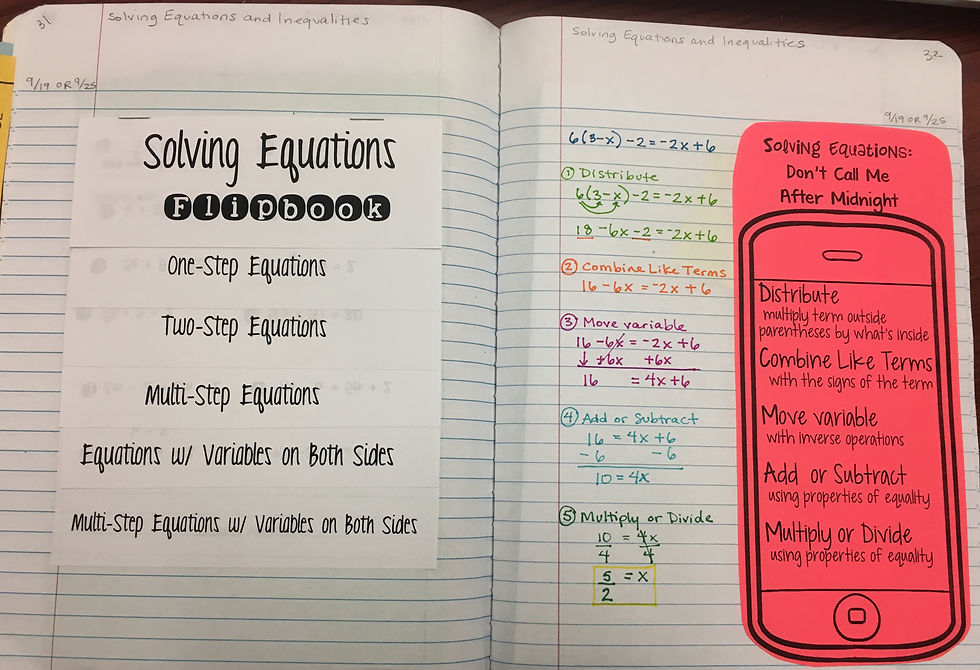 31
Solving Equations and Inequalities
9/19 OR 9/25
Solving Equations
Flipbook
One-Step Equations
Two-Step Equations
Multi-Step Equations
Equations w/ Variables on Both Sides
Multi-Step Equations w/ Variables on Both Sides
Solving Equations and Inequalities
32
9/19 OR 9/25
6(3-x)-2=-2x+6
① Distribute
6(3-x)-2=-2x+6
18-6x-2=-2x+6
② Combine Like Terms
16-6x=-2x+6
③ Move variable
16-6x=-2x+6
↓ +6x +6x
16 = 4x+6
④ Add or Subtract
16 = 4x+6
-6 -6
10=4x
⑤ Multiply or Divide
10 = 4x
4 4
5 = x
2
Solving Equations:
Don't Call Me
After Midnight
Distribute
multiply term outside
parentheses by what's inside
Combine Like Terms
with the signs of the term
Move variable
with inverse operations
Add or Subtract
using properties of equality
Multiply or Divide
using properties of equality